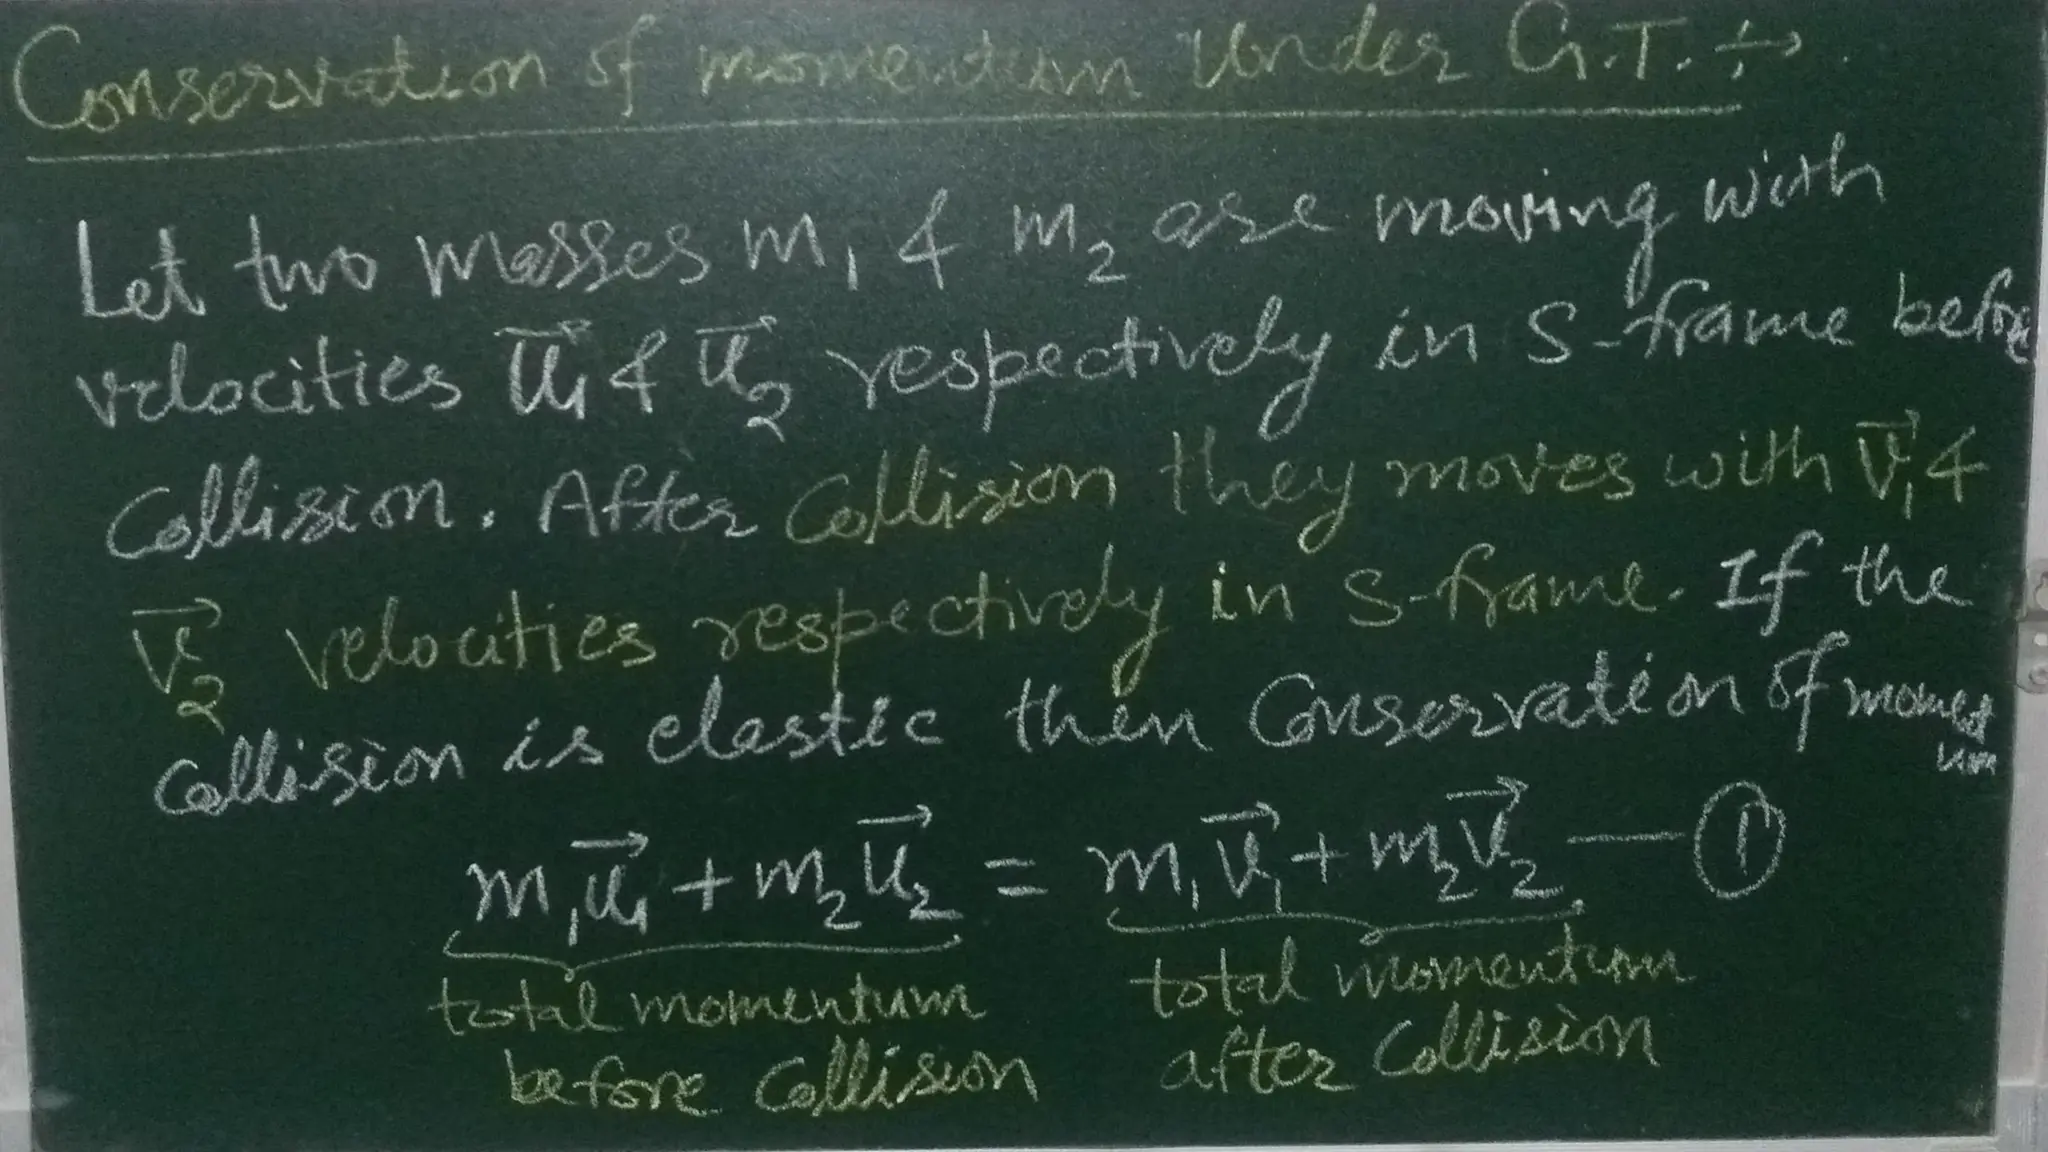 Conservation of momentum Under G.T. ÷→
Let two masses m₁ & m₂ are moving with
velocities u⃗₁ & u⃗₂ respectively in S-frame before
Collision. After Collision they moves with v⃗₁ &
v⃗₂ velocities respectively in S-frame. If the
Collision is elastic then Conservation of momentum
m₁u⃗₁ + m₂u⃗₂ = m₁v⃗₁ + m₂v⃗₂ — ①
total momentum total momentum
before Collision after Collision